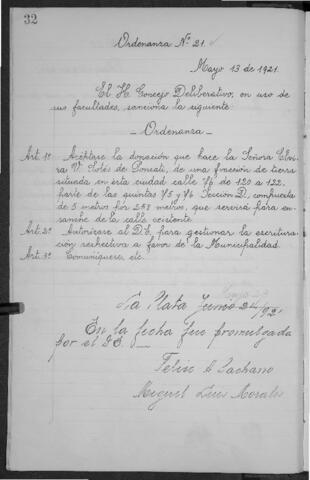 32
Ordenanza Nº 21.
Mayo 13 de 1921.
El H. Concejo Deliberativo, en uso de
sus facultades, sanciona la siguiente
— Ordenanza —
Art. 1º Acéptase la donación que hace la Señora
ra V. de, de una fracción de tierra
situada en esta ciudad calle 76 de 120 a 122,
parte de las quintas 75 y 76 Sección D, compuesta
de 5 metros por 258 metros, que servirá para en-
sanche de la calle existente.
Art. 2º Autorízase al D.E, para gestionar la escritura-
ción respectiva a favor de la Municipalidad.
Art. 3º Comuníquese, etc.
La Plata Junio 24/921
En la fecha fué promulgada
por el D.E. —
Felix A
Miguel Luis Morales